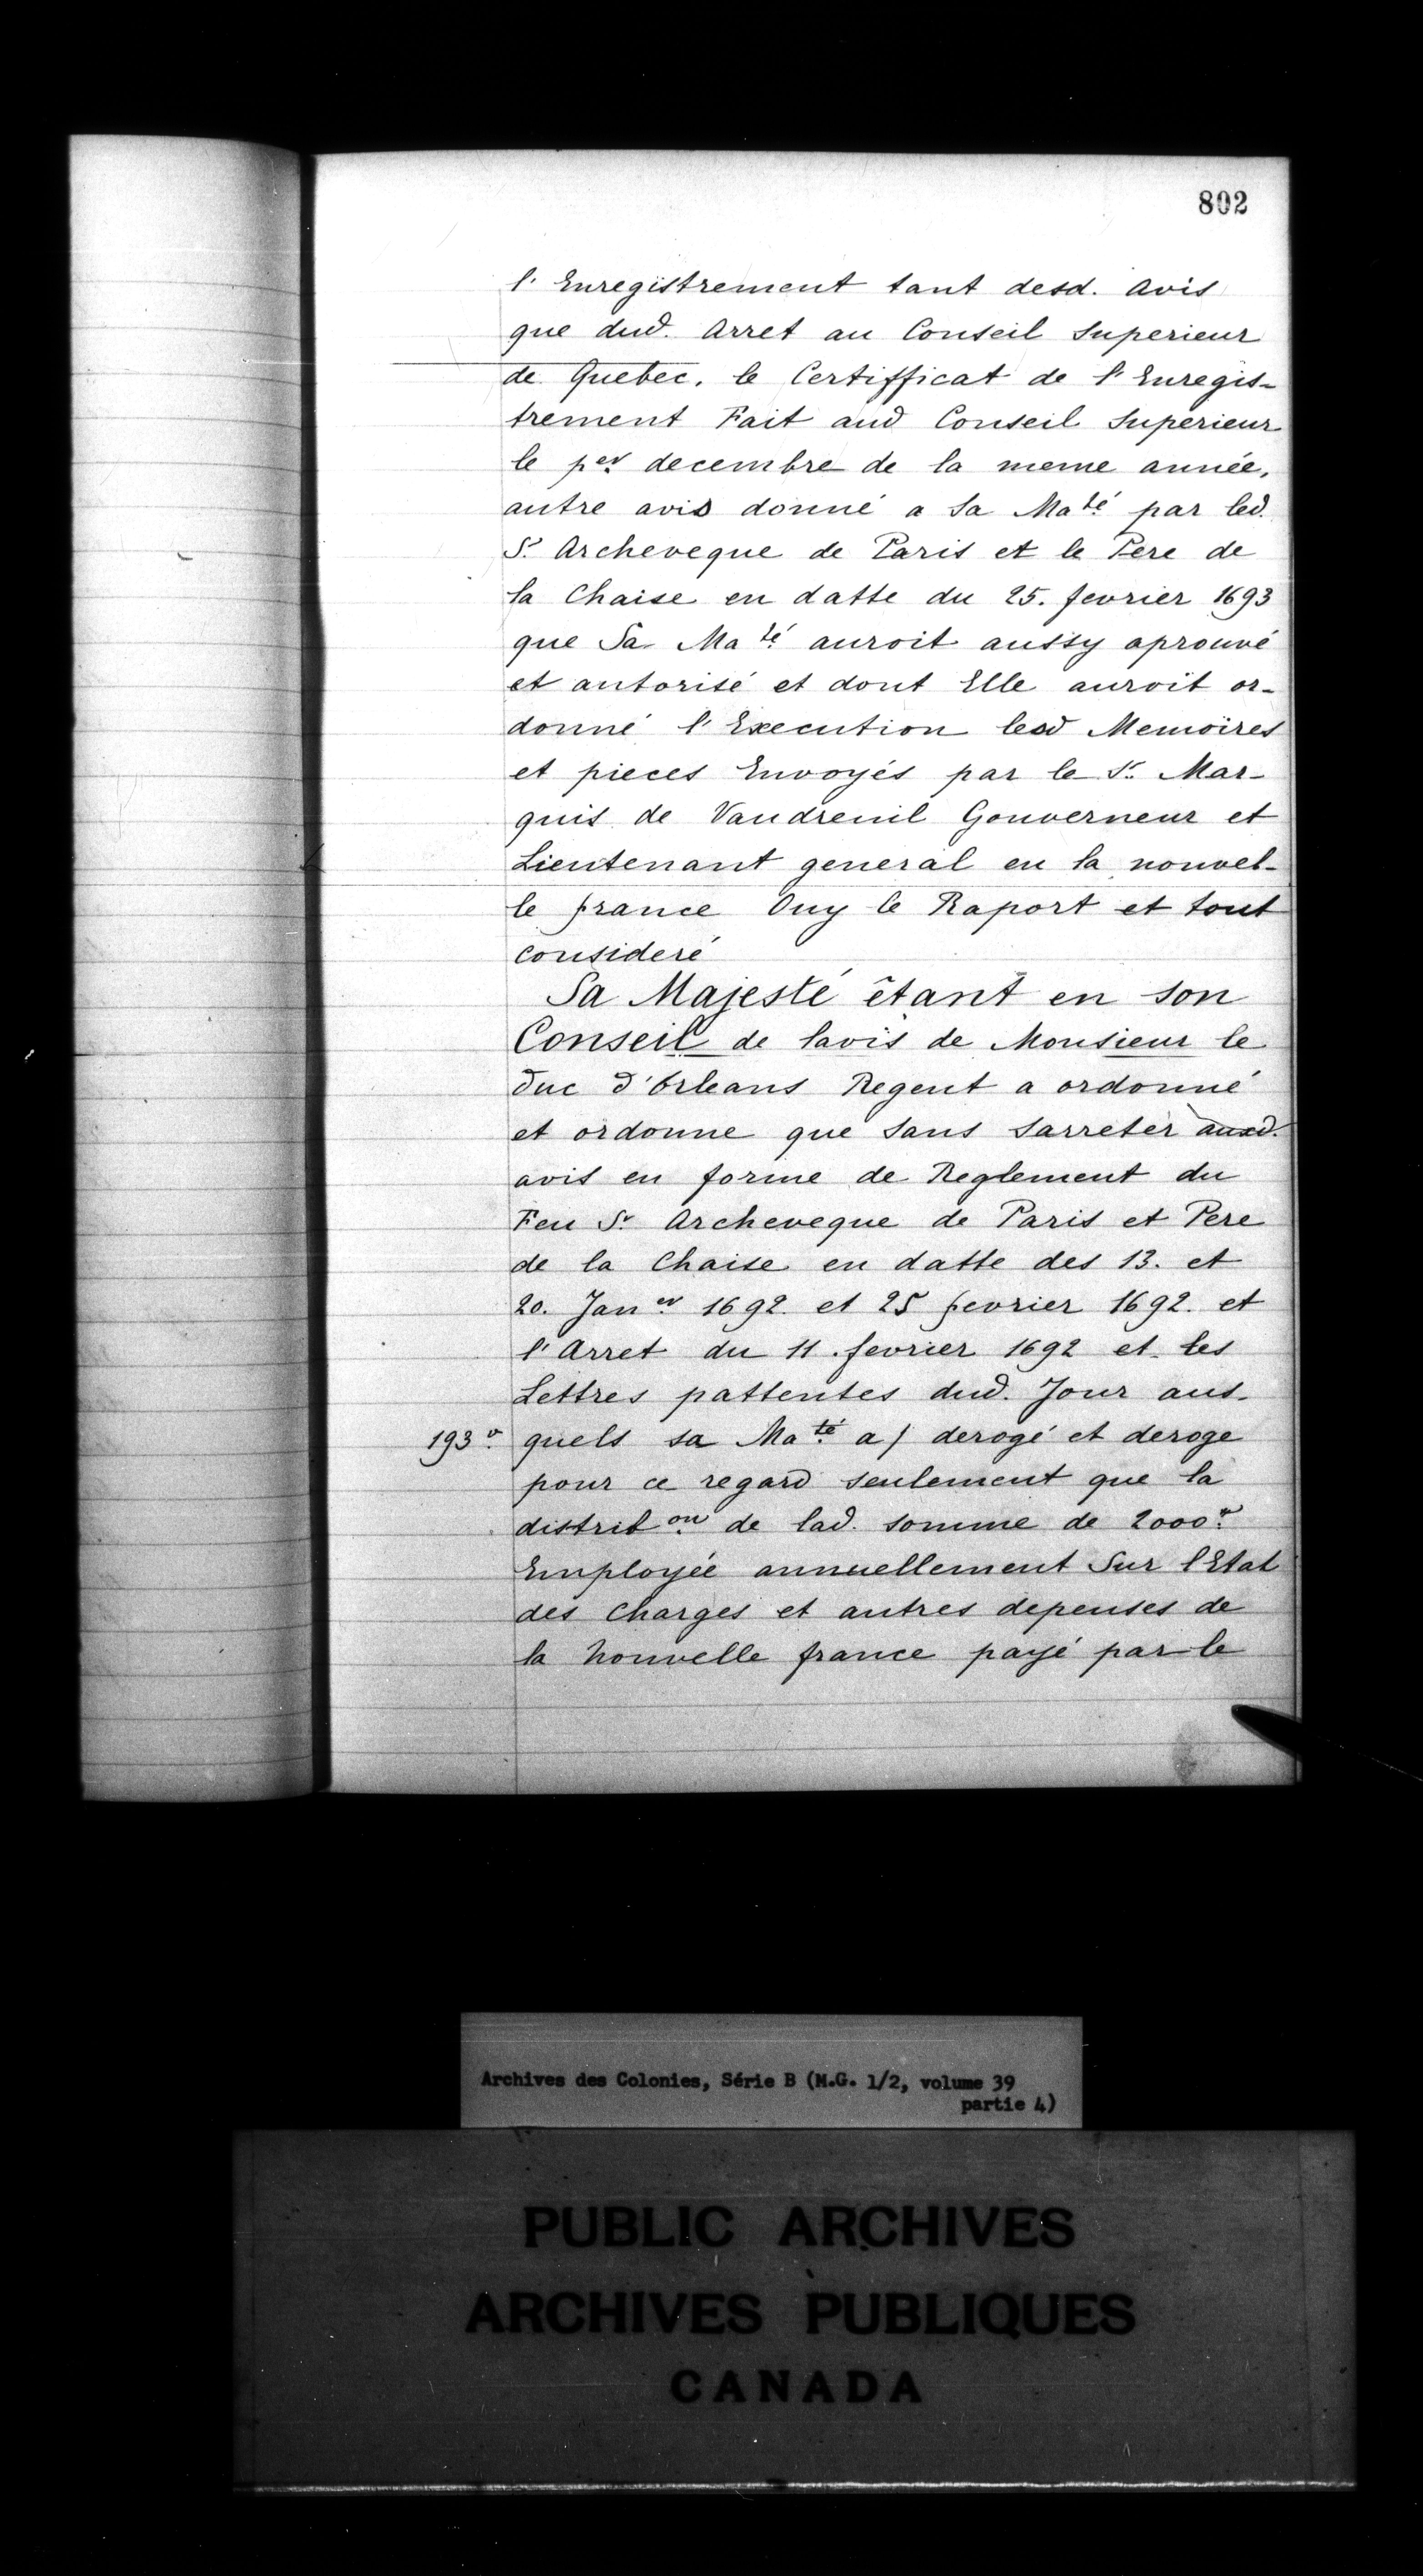 802
l'Enregistrement tant desd. avis
que dud. Arret au Conseil superieur
de Quebec, le Certifficat de l'Enregis-
trement Fait aud Conseil superieur
le per decembre de la meme année,
autre avis donné a sa Maté par led.
Sr Archeveque de Paris et le Pere de
la Chaise en datte du 25. fevrier 1693
que Sa Maté auroit aussy aprouvé
et autorisé et dont Elle auroit or-
donné l'Execution lesd Memoires
et pieces Envoyés par le Sr Mar-
quis de Vaudreuil Gouverneur et
Lieutenant general en la nouvel-
le france Ouy le Raport et tout
consideré
Sa Majesté étant en son
Conseil de lavis de Monsieur le
Duc d'Orleans Regent a ordonné
et ordonne que sans sarreter auxd.
avis en forme de Reglement du
Feu Sr Archeveque de Paris et Pere
de la Chaise en datte des 13. et
20. Janer 1692 et 25 fevrier 1692. et
l'Arret du 11. fevrier 1692 et les
Lettres pattentes dud. Jour aus-
193 v. quels sa Maté a/ derogé et deroge
pour ce regard seulement que la
distribon de lad. somme de 2000#
Employée annuellement Sur l'Etat
des charges et autres depenses de
la nouvelle france payé par le
Archives des Colonies, Série B (M.G. 1/2, volume 39
partie 4)
PUBLIC ARCHIVES
ARCHIVES PUBLIQUES
CANADA